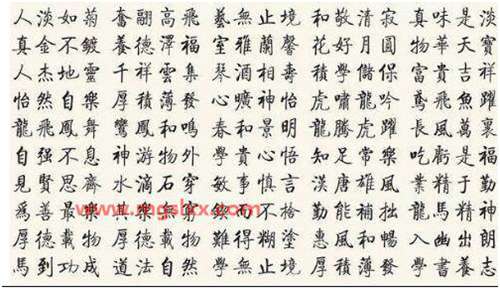 人淡如菊 奮翮高飛 藝無止境 和敬清寂 真味是淡
真金不鍍 養德澤福 室雅蘭馨 花好月圓 物華天寶
人杰地靈 千祥雲集 琴酒相壽 積學儲保 富貴吉祥
怡然自樂 厚積薄發 心曠神怡 虎嘯龍吟 鳶飛魚躍
龍飛鳳舞 鸞鳳和鳴 春和景明 龍騰虎躍 長風萬裏
自强不息 神游物外 學貴心悟 知足常樂 吃虧是福
見賢思齊 水滴石穿 敏事慎言 漢唐雄風 業精于勤
爲善最樂 其樂無 不 勤能補拙 龍馬精神
厚德載物 厚德載物 難得糊塗 惠風和暢 入幽出朗
馬到功成 道法自然 學無止境 厚積薄發 學書養志